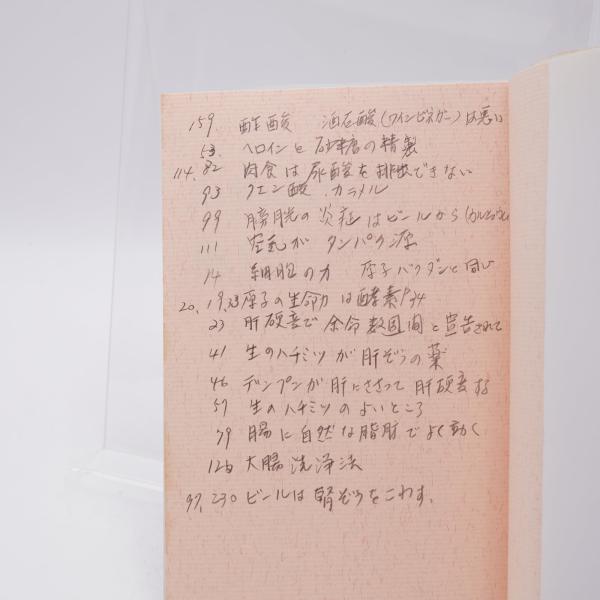 159 酢酸 酒石酸(ワインビネガー)は悪い
53. ヘロインと砂糖の精製
114. 82 肉食は尿酸を排出できない
93 クエン酸、カラメル
99 膀胱の炎症はビールから
111 空気がタンパク源
14 細胞の力 原子バクダンと同じ
20, 19, 原子の生命力は酵素P34
23 肝硬変で余命数週間と宣告されて
41 生のハチミツが肝ぞうの薬
46 デンプンが肝にささって肝硬変する
57 生のハチミツのよいところ
79 腸に自然な脂肪でよく効く
大腸洗浄法
97, 230 ビールは腎ぞうをこわす。